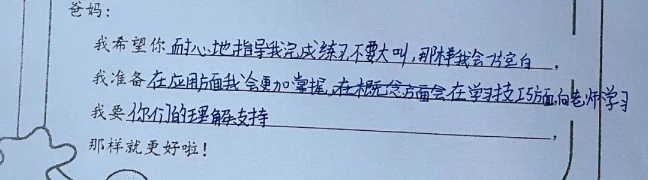 爸妈：
我希望你耐心地指导我完成练习不要大叫，那样我会飞空白，
我准备在应用方面我会更加掌握，在概念方面会在学习技巧方面，向老师学习
我要你们的理解支持，
那样就更好啦！